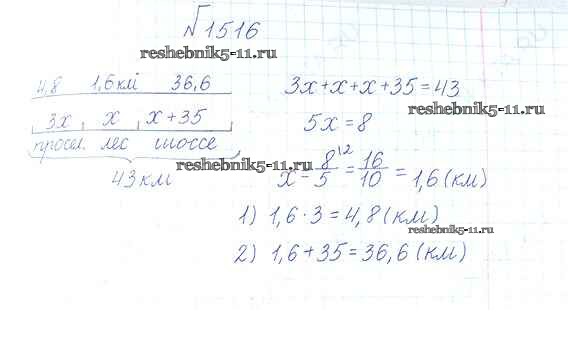 √1516
reshebnik5-11.ru
4,8 1,6 км 36,6
3x x x+35
просел. лес шоссе
43 км
reshebnik5-11.ru
3x+x+x+35=43
reshebnik5-11.ru
5x=8
x=8/5 ^(12) =16/10 =1,6 (км)
1) 1,6·3=4,8 (км)
reshebnik5-11.ru
2) 1,6+35=36,6 (км)